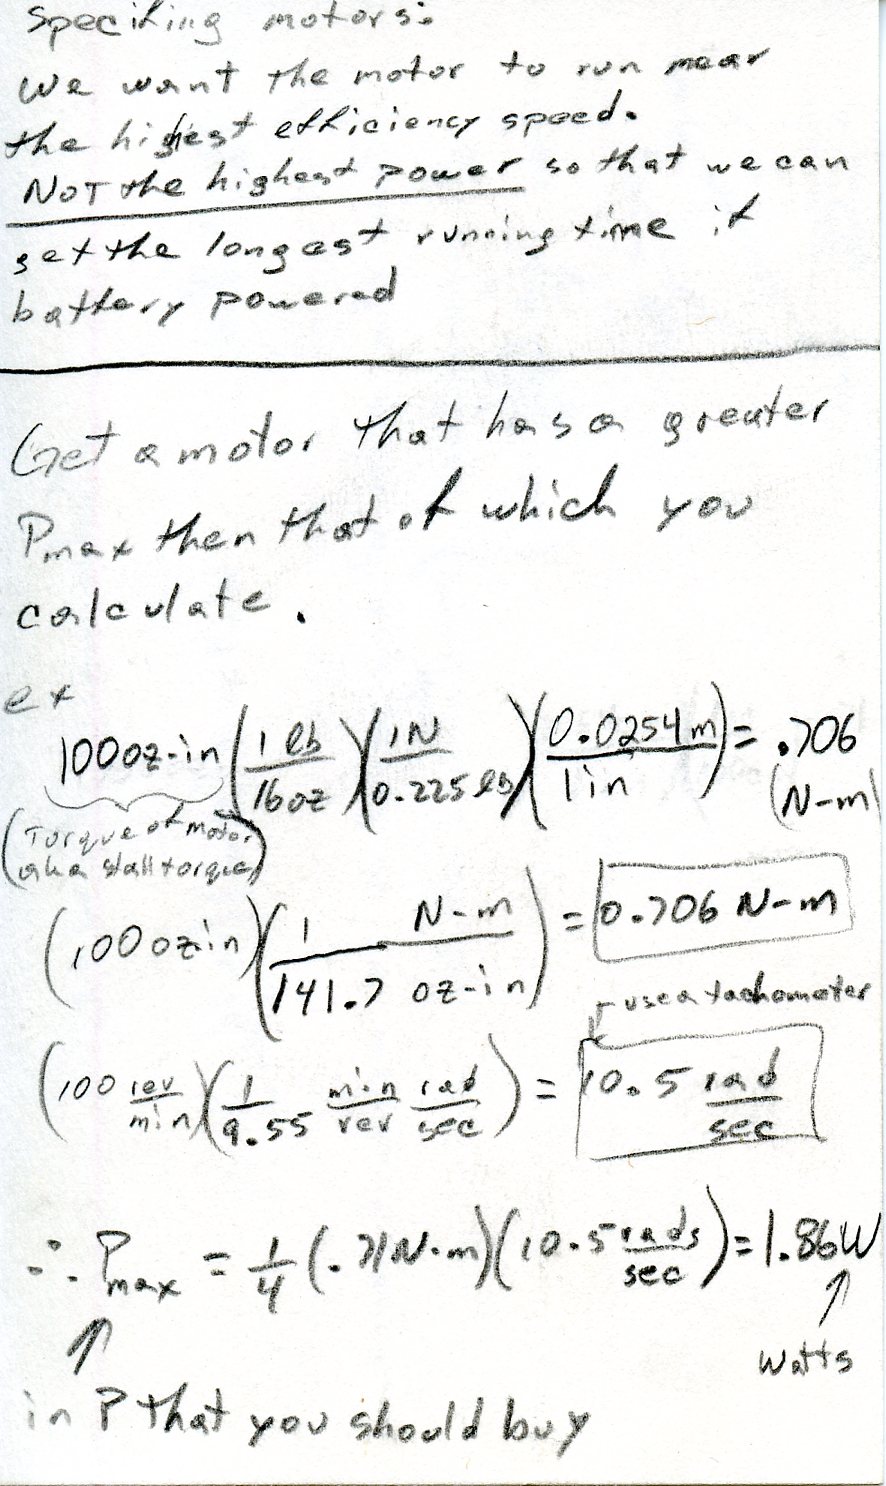 Specifing motors:
We want the motor to run near
the highest efficiency speed.
NOT the highest power so that we can
get the longest running time if
battery powered
Get a motor that has a greater
Pmax then that of which you
calculate.
ex
100oz-in (1 lb / 16 oz)(1N / 0.225 lb)(0.0254 m / 1 in) = .706 (N-m)
(Torque of motor
aka stall torque)
(100 oz in)(1 / 141.7 N-m / oz-in) = 0.706 N-m
use a tachometer
(100 rev/min)(1/9.55 min/rev rad/sec) = 10.5 rad/sec
∴ Pmax = 1/4 (.71N·m)(10.5 rads/sec) = 1.86W
Watts
in P that you should buy